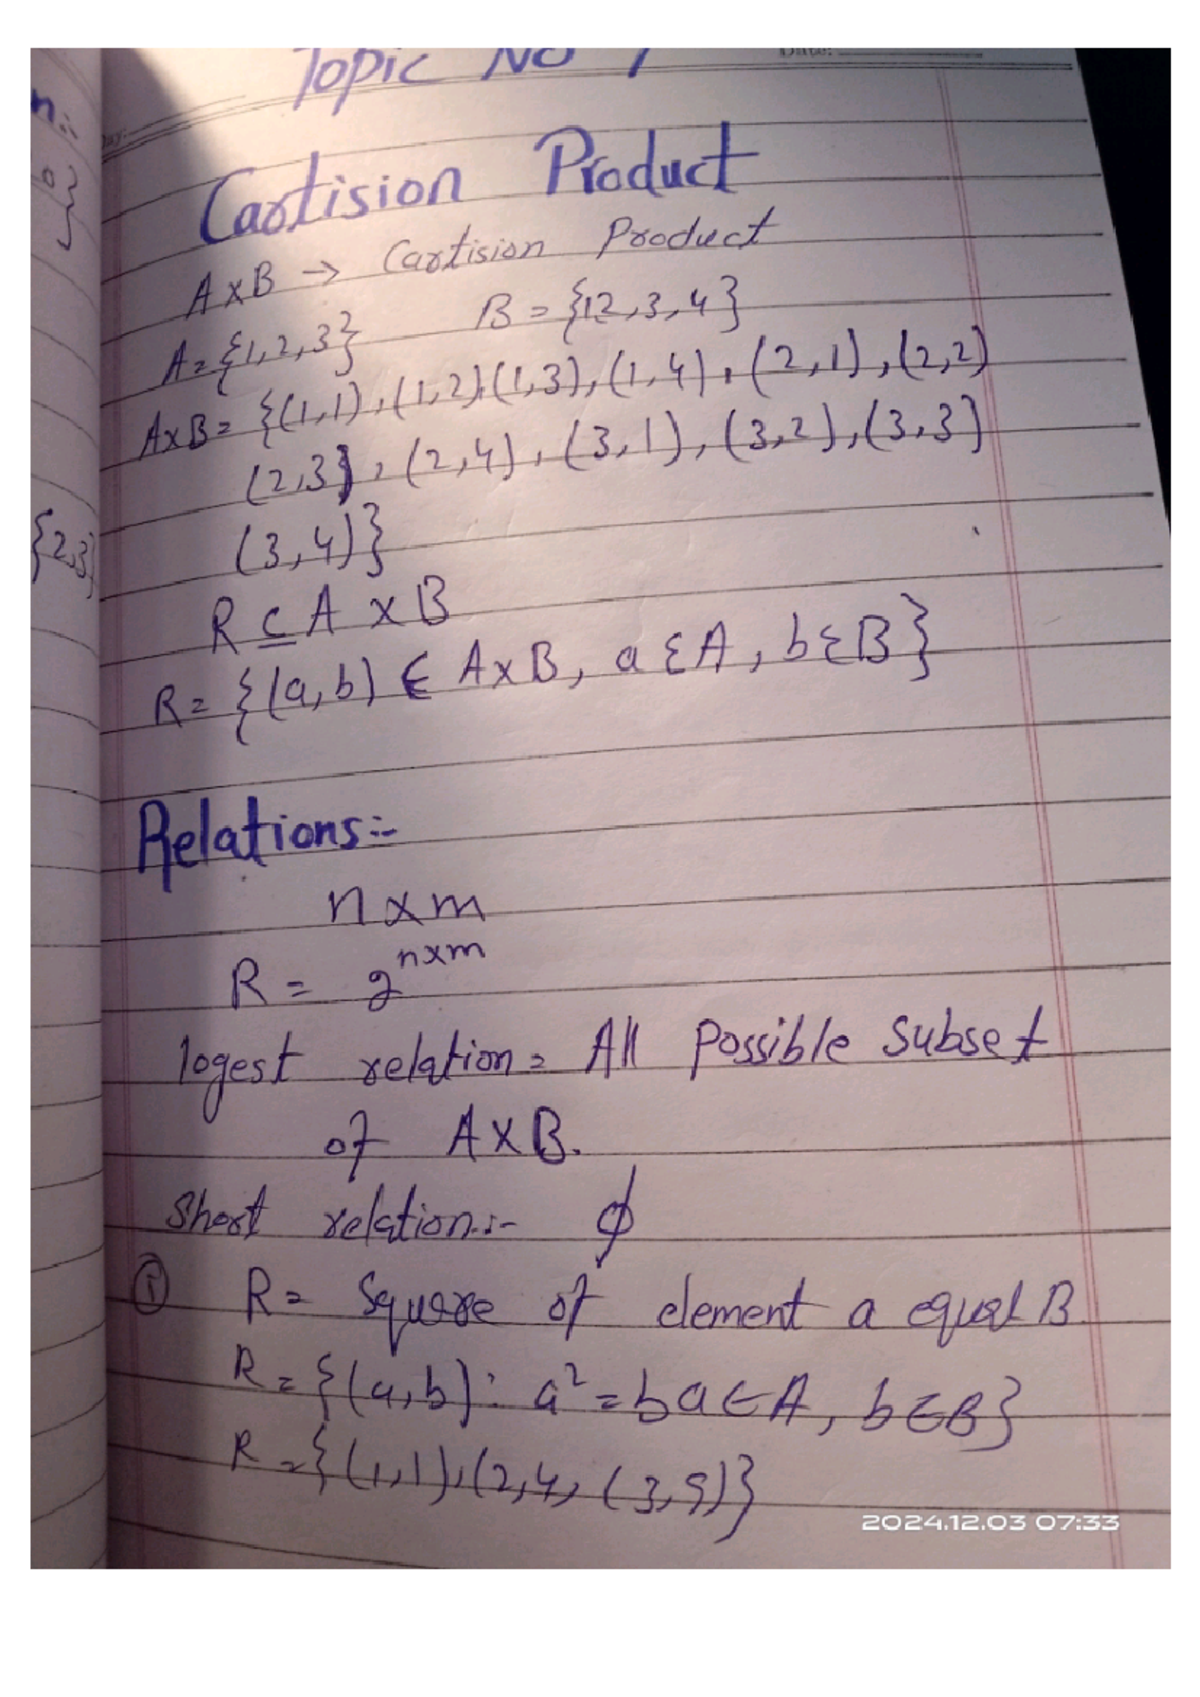 Topic No 1
Date:
n:-
Day:
Cartision Product
A×B → Cartision Product
A={1,2,3} B={12,3,4}
A×B= {(1,1),(1,2),(1,3),(1,4),(2,1),(2,2)
(2,3},(2,4),(3,1),(3,2),(3,3)
{2,3}
(3,4)}
R ⊆ A × B
R= {(a,b) ∈ A×B, a∈A, b∈B}
Relations:-
n×m
R= 2^n×m
logest relation= All Possible Subset
of A×B.
Short relation:- ϕ
① R= Square of element a equal B
R={(a,b): a²=b a∈A, b∈B}
R={(1,1),(2,4,(3,9)}
2024.12.03 07:33